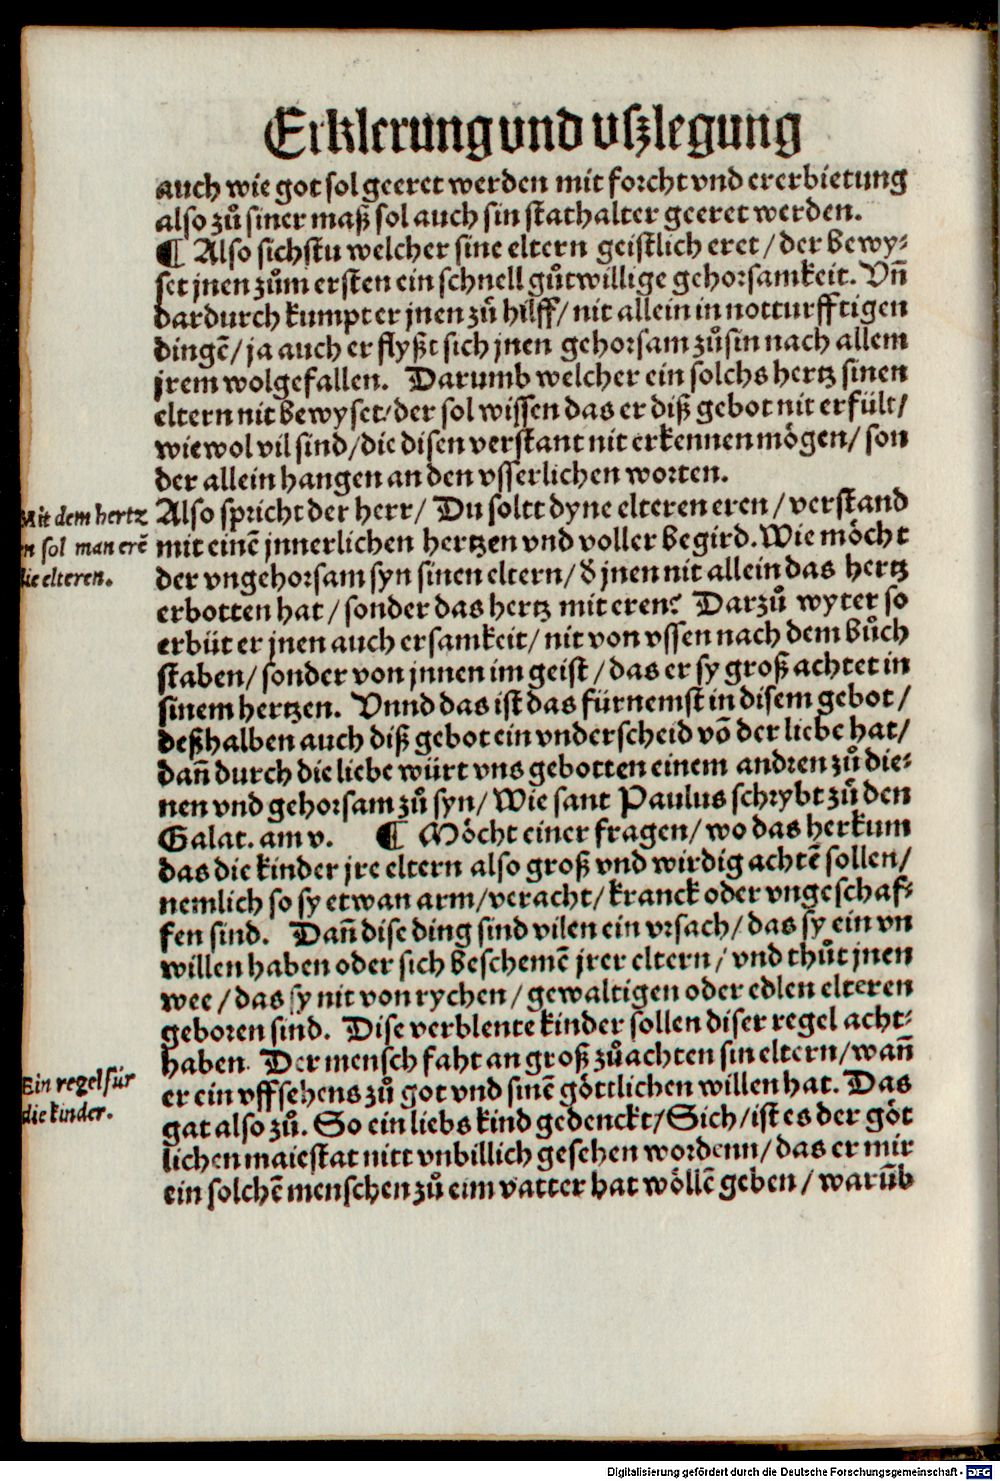 Erklerung vnd vſzlegung
auch wie got ſol geeret werden mit forcht vnd ererbietung
alſo zů ſiner maß ſol auch ſin ſtathalter geeret werden.
¶ Alſo sichſtu welcher ſine eltern geiſtlich eret / der bewy⸗
ſet jnen zům erſten ein ſchnell gůtwillige gehorſamkeit. Vñ
dardurch kumpt er jnen zů hilff / nit allein in notturfftigen
dingẽ / ja auch er flyßt ſich jnen gehorſam zů ſin nach allem
jrem wolgefallen. Darumb welcher ein ſolchs hertz ſinen
eltern nit bewyſet / der ſol wiſſen das er diß gebot nit erfült /
wiewol vil ſind / die diſen verſtant nit erkennen mögen / ſon
der allein hangen an den vſſerlichen worten.
Mit dem hertz
en ſol man erẽ
die elteren.
Alſo ſpricht der herr / Du ſoltt dyne elteren eren / verſtand
mit einẽ jnnerlichen hertzen vnd voller begird. Wie möcht
der vngehorſam ſyn ſinen eltern / d̕ jnen nit allein das hertz
erbotten hat / ſonder das hertz mit eren? Darzů wyter ſo
erbüt er jnen auch erſamkeit / nit von vſſen nach dem bůch
ſtaben / ſonder von jnnen im geiſt / das er ſy groß achtet in
ſinem hertzen. Vnnd das iſt das fürnemſt in diſem gebot /
deßhalben auch diß gebot ein vnderſcheid võ der liebe hat /
dañ durch die liebe würt vns gebotten einem andren zů die⸗
nen vnd gehorſam zů ſyn / Wie ſant Paulus ſchrybt zů den
Galat. am v. ¶ Möcht einer fragen / wo das herkum
das die kinder jre eltern alſo groß vnd wirdig achtẽ ſollen /
nemlich ſo ſy etwan arm / veracht / kranck oder vngeſchaf⸗
fen ſind. Dañ diſe ding ſind vilen ein vrſach / das ſy ein vn
willen haben oder ſich beſchemẽ jrer eltern / vnd thůt jnen
wee / das ſy nit von rychen / gewaltigen oder edlen elteren
geboren ſind. Diſe verblente kinder ſollen diſer regel acht⸗
haben. Der menſch faht an groß zů achten ſin eltern / wañ
Ein regel für
die kinder.
er ein vffſehens zů got vnd ſinẽ göttlichen willen hat. Das
gat alſo zů. So ein liebs kind gedenckt / Sich / iſt es der göt
lichen maieſtat nitt vnbillich geſehen wordenn / das er mir
ein ſolchẽ menſchen zů eim vatter hat wöllẽ geben / warũb
Digitalisierung gefördert durch die Deutsche Forschungsgemeinschaft - DFG